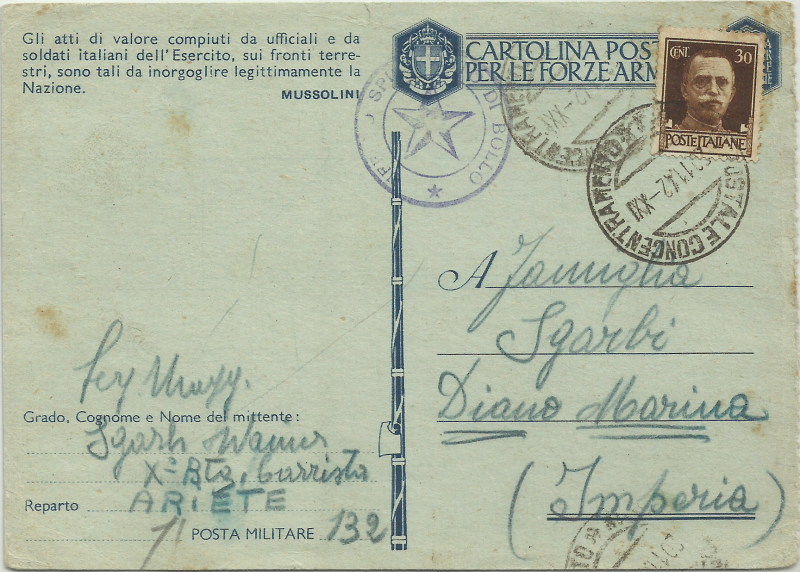 Gli atti di valore compiuti da ufficiali e da
soldati italiani dell'Esercito, sui fronti terre-
stri, sono tali da inorgoglire legittimamente la
Nazione.
MUSSOLINI
CARTOLINA POST
PER LE FORZE ARM
CENT. 30
POSTE ITALIANE
DI BOLLO
POSTALE CONCENTRAMENTO
11.42-XXI
A Famiglia
Sgarbi
Diano Marina
(Imperia)
Grado, Cognome e Nome del mittente:
Sgarbi
X° Btg. Carrista
Reparto ARIETE
POSTA MILITARE 132